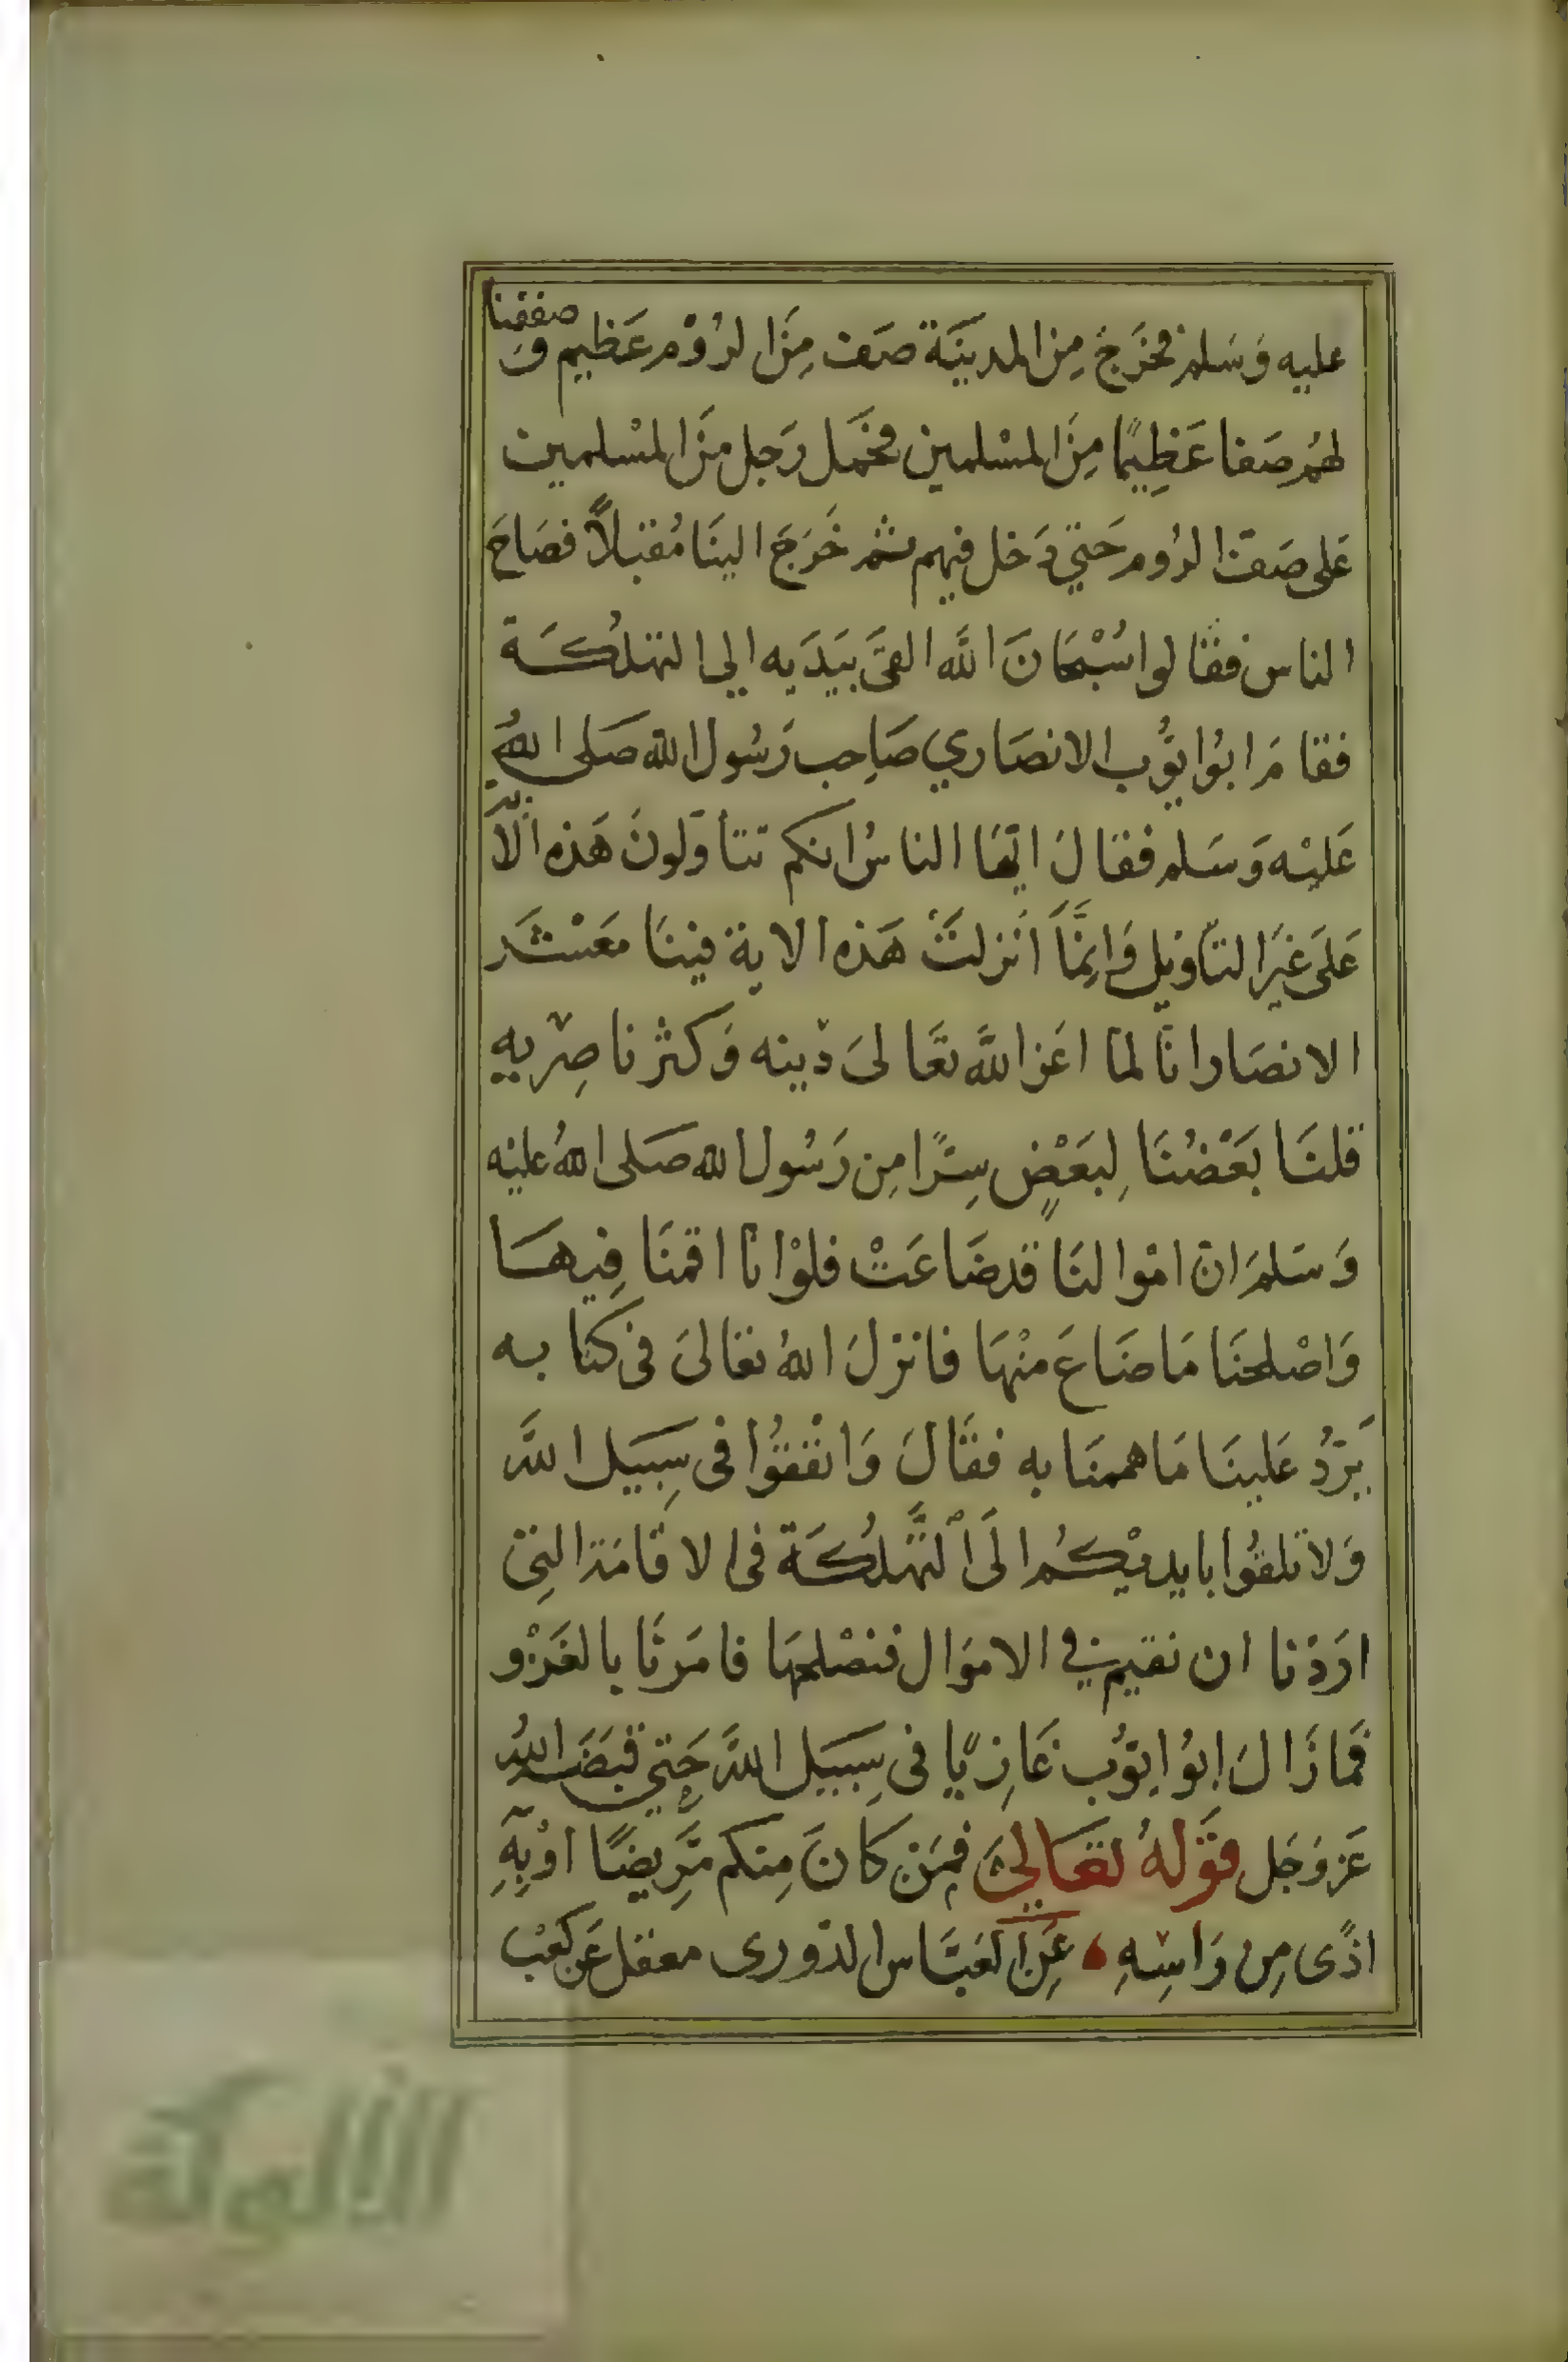 عليه وَسَلم فخرَج مِن المدينَة صَف مِنَ الرُوْم عَظِيم وَصففنا
لهُم صَفا عَظِيمًا مِنَ المسْلمين فحمَل رَجل منَ المسْلمين
عَلى صَف الرُوم حَتي دَخل فيهم ثم خَرَجَ الينَا مُقبلاً فصَاحَ
الناس فقالوا سُبْحَانَ الله القىَ بيَدَيه الي التهلُكَة
فقامَ ابُوا يوُّب الانصَاري صَاحِب رَسُول الله صَلى اللهُ
عَليْه وَسَلم فقالَ ايُّهَا الناسُ انكم تتأوَلونَ هَذه الآية
عَلَى غيَر التأويل وَانمَّا أنزلتْ هَذه الاية فينَا مَعشَر
الانصَار انا لما اعَز اللَّه تعَالىَ دينه وَكثر ناصِريه
قلنَا بَعْضُنَا لِبَعْضٍ سِرًا مِن رَسُول الله صَلى اللهُ عليْه
وَسَلمَ ان امْوالنَا قد ضَاعَتْ فلوْ انا اقمنَا فِيهَا
وَاصْلحنَا مَا ضَاعَ منْهَا فانزلَ اللهُ تعَالىَ فى كتابه
يَردُّ عَلينَا مَا هممنَا به فقَالَ وَانْفقوُا فى سِبَيل اللهَّ
وَلا تلقوُا بايديْكُم الَى ٱلتَّهْلُكَة فى الاقامَة التِى
ارَدْنا ان نقيم في الاموَال فنصْلحهَا فامَرنَا بالغَزْو
فمَا زَالَ ابُو ايوُّب غَازِيًا فى سِبَيل اللهَّ حَتي قبَضَه اللهُ
عَز وَجَل قوَلهُ تعَالىَ فمَن كَانَ مِنكم مَّرِيضًا اوْ بِهِ
اذًى مِن رَاسِهِ عَن العَبَّاس الدوْرى معقل عَن كعْب
الألوكة